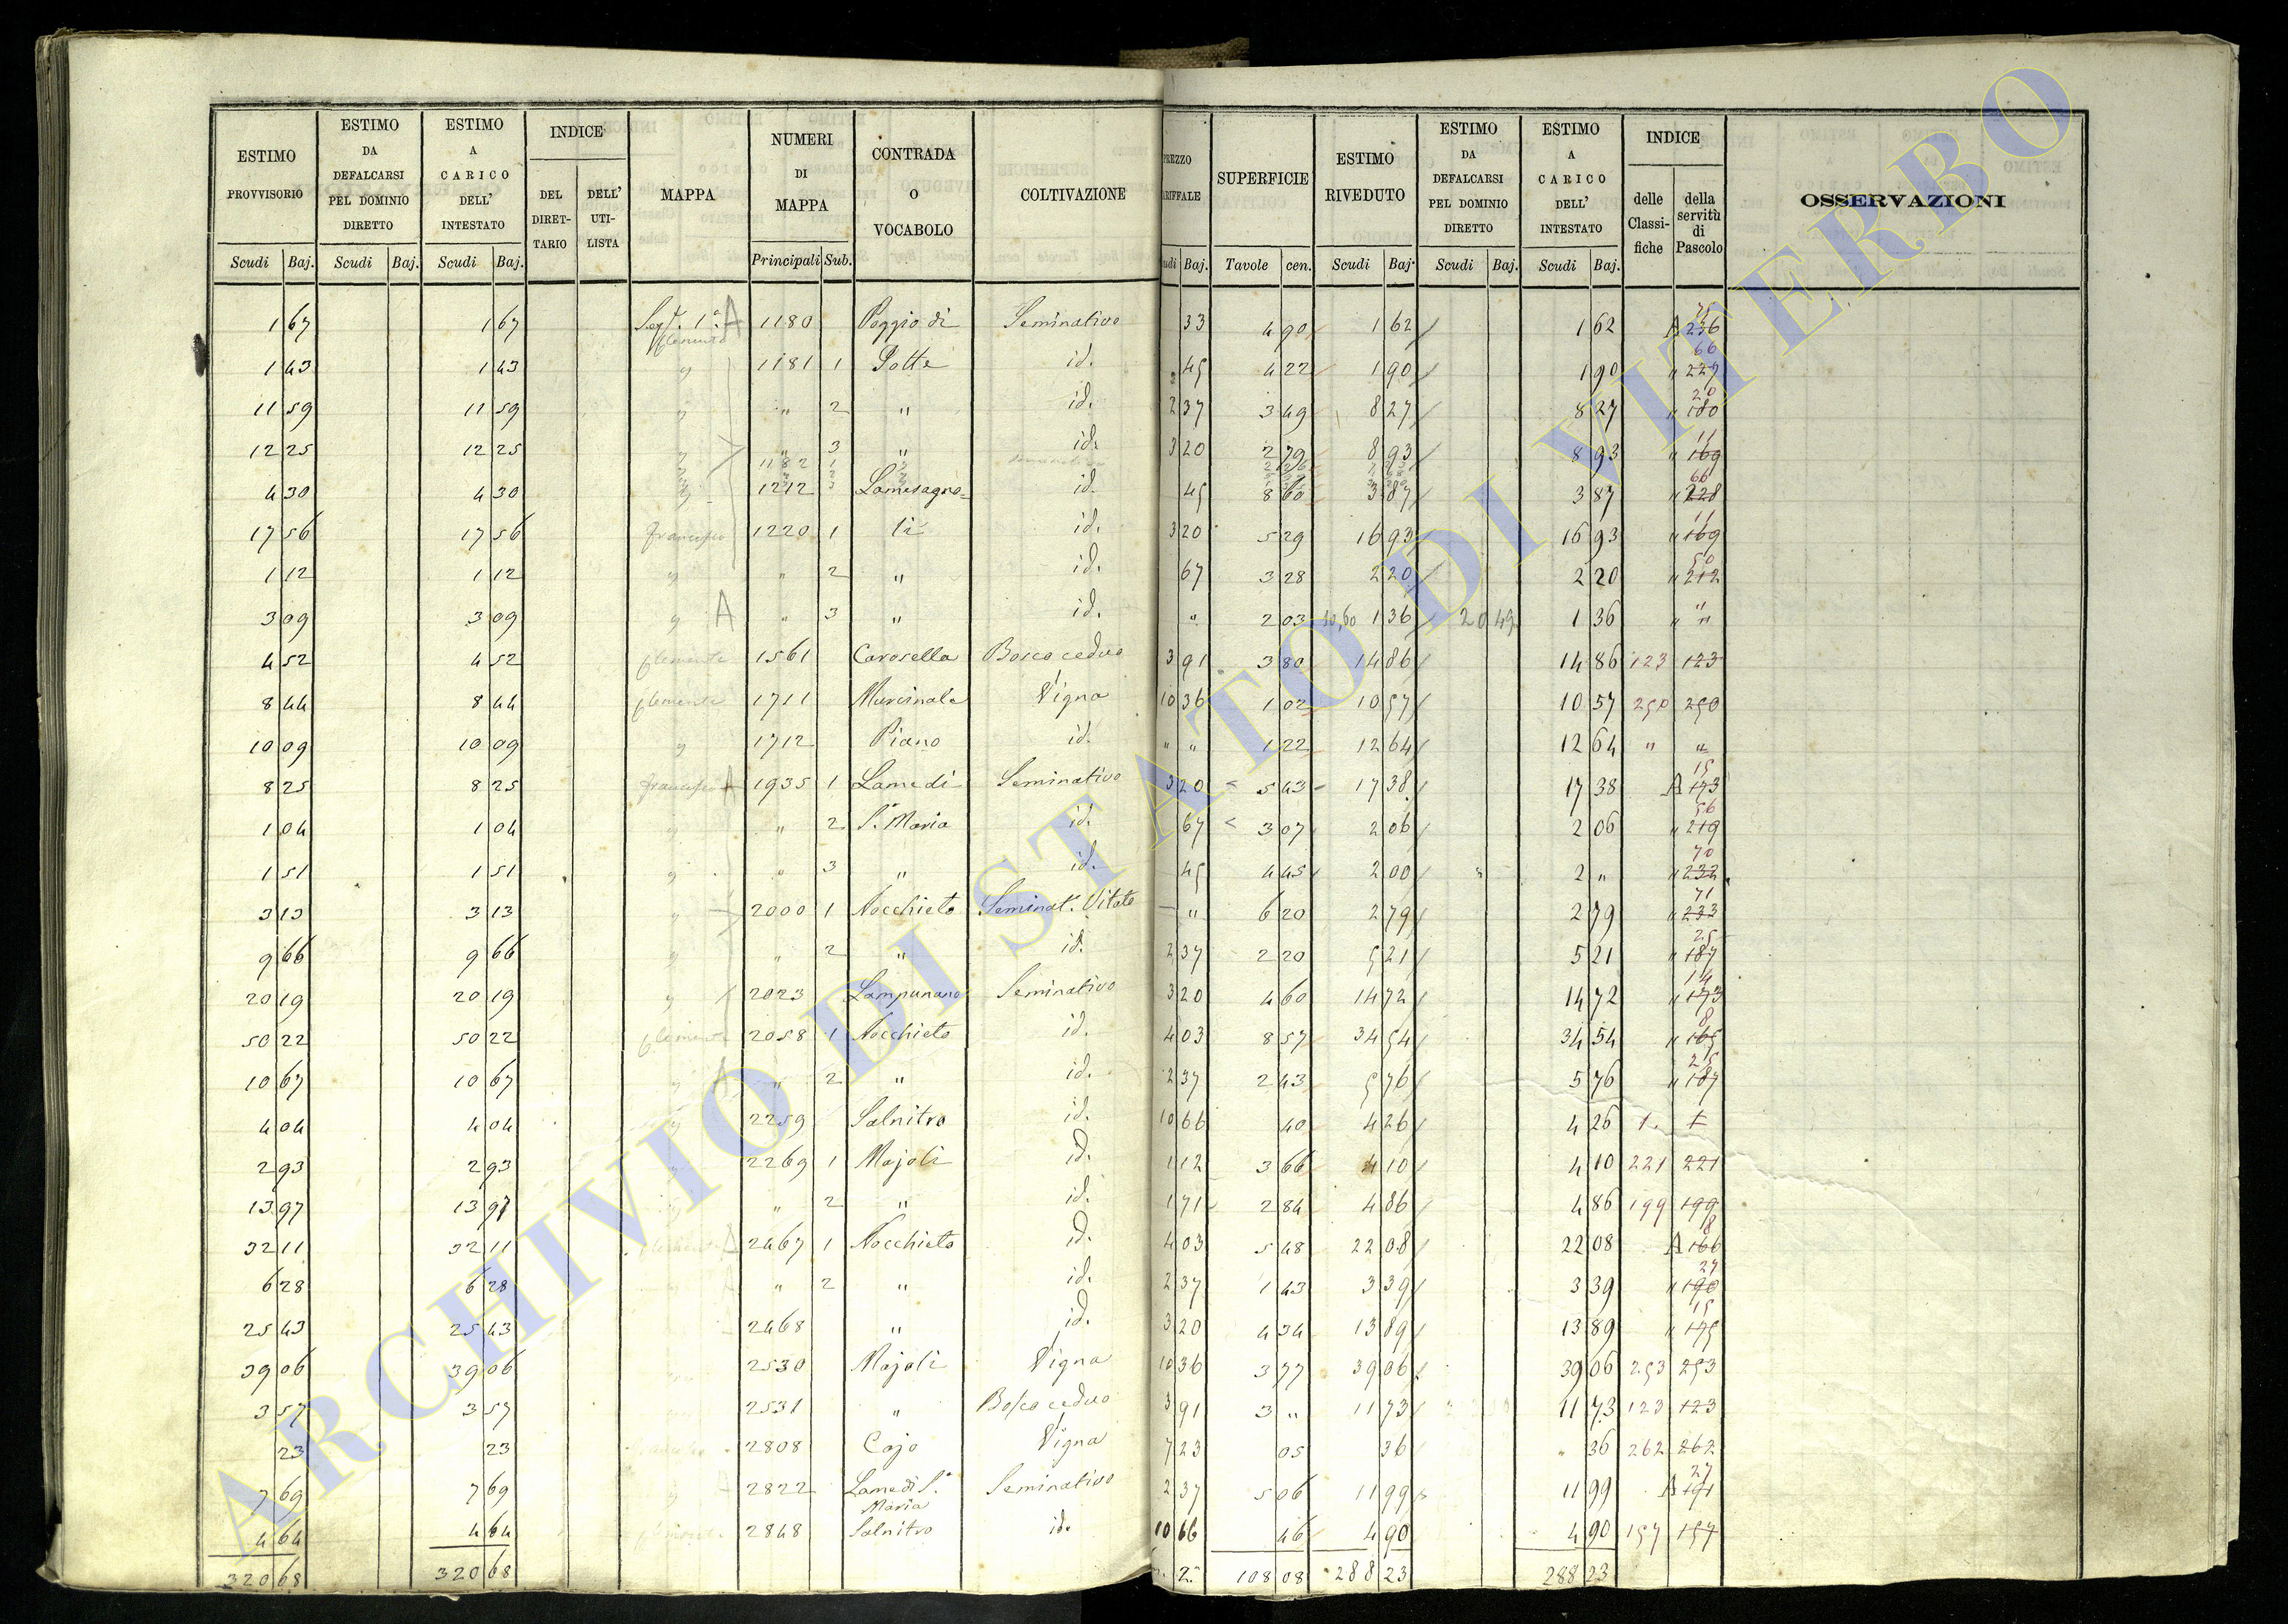 ESTIMO PROVVISORIO | ESTIMO DA DEFALCARSI PEL DOMINIO DIRETTO | ESTIMO A CARICO DELL' INTESTATO | INDICE | MAPPA | NUMERI DI MAPPA | CONTRADA O VOCABOLO | COLTIVAZIONE | PREZZO TARIFFALE | SUPERFICIE | ESTIMO RIVEDUTO | ESTIMO DA DEFALCARSI PEL DOMINIO DIRETTO | ESTIMO A CARICO DELL' INTESTATO | INDICE | OSSERVAZIONI
DEL DIRETTARIO | DELL' UTILISTA | delle Classifiche | della servitù di Pascolo
Scudi | Baj. | Scudi | Baj. | Scudi | Baj. | Principali | Sub. | Scudi | Baj. | Tavole | cen. | Scudi | Baj. | Scudi | Baj. | Scudi | Baj.
1 67 | 1 67 | Sez. 1a A | 1180 | Poggio di | Seminativo | 33 | 4 90 | 1 62 | 1 62 | A 236
Clemente
1 43 | 1 43 | 1181 | 1 | Potte | id. | 45 | 4 22 | 1 90 | 1 90 | " 227 66
11 59 | 11 59 | " | 2 | " | id. | 2 37 | 3 49 | 8 27 | 8 27 | " 180 20
12 25 | 12 25 | " | 3 | " | id. | 3 20 | 2 79 | 8 93 | 8 93 | " 169 11
1182 1
4 30 | 4 30 | 1212 | Lamesagna= | id. | 45 | 8 60 | 3 87 | 3 87 | " 228 66
17 56 | 17 56 | Francesco | 1220 | 1 | ti | id. | 3 20 | 5 29 | 16 93 | 16 93 | " 169 11
1 12 | 1 12 | " | 2 | " | id. | 67 | 3 28 | 2 20 | 2 20 | " 212 50
3 09 | 3 09 | A | " | 3 | " | id. | " | 2 03 | 10,60 | 1 36 | 20 49 | 1 36 | " "
4 52 | 4 52 | Clemente | 1561 | Carosella | Bosco ceduo | 3 91 | 3 80 | 14 86 | 14 86 | 123 | 123
8 44 | 8 44 | Clemente | 1711 | Murcinale | Vigna | 10 36 | 1 02 | 10 57 | 10 57 | 250 | 250
10 09 | 10 09 | 1712 | Piano | id. | " " | 1 22 | 12 64 | 12 64 | " | "
8 25 | 8 25 | Francesco A | 1935 | 1 | Lame di | Seminativo | 3 20 | 5 43 | 17 38 | 17 38 | A 173 15
1 04 | 1 04 | " | 2 | Sa. Maria | id. | 67 | 3 07 | 2 06 | 2 06 | " 219 56
1 51 | 1 51 | " | 3 | " | id. | 45 | 4 45 | 2 00 | 2 " | " 232 70
3 13 | 3 13 | 2000 | 1 | Nocchieto | Seminat. Vitato | " | 6 20 | 2 79 | 2 79 | " 233 71
9 66 | 9 66 | " | 2 | " | id. | 2 37 | 2 20 | 5 21 | 5 21 | " 187 25
20 19 | 20 19 | 2023 | Lampunano | Seminativo | 3 20 | 4 60 | 14 72 | 14 72 | " 173 14
50 22 | 50 22 | Clemente | 2058 | 1 | Nocchieto | id. | 4 03 | 8 57 | 34 54 | 34 54 | " 165 8
10 67 | 10 67 | A | " | 2 | " | id. | 2 37 | 2 43 | 5 76 | 5 76 | " 187 25
4 04 | 4 04 | 2259 | Salnitro | id. | 10 66 | 40 | 4 26 | 4 26 | 1. | 1
2 93 | 2 93 | 2269 | 1 | Majoli | id. | 1 12 | 3 66 | 4 10 | 4 10 | 221 | 221
13 97 | 13 97 | " | 2 | " | id. | 1 71 | 2 84 | 4 86 | 4 86 | 199 | 199
32 11 | 32 11 | A | 2467 | 1 | Nocchieto | id. | 4 03 | 5 48 | 22 08 | 22 08 | A 166 8
6 28 | 6 28 | " | 2 | " | id. | 2 37 | 1 43 | 3 39 | 3 39 | " 190 27
25 43 | 25 43 | 2468 | " | id. | 3 20 | 4 34 | 13 89 | 13 89 | " 175 15
39 06 | 39 06 | 2530 | Majoli | Vigna | 10 36 | 3 77 | 39 06 | 39 06 | 253 | 253
3 57 | 3 57 | 2531 | " | Bosco ceduo | 3 91 | 3 " | 11 73 | 11 73 | 123 | 123
23 | 23 | 2808 | Cajo | Vigna | 7 23 | 05 | 36 | " 36 | 262 | 262
7 69 | 7 69 | 2822 | Lame di Sa. Maria | Seminativo | 2 37 | 5 06 | 11 99 | 11 99 | A 191 27
4 64 | 4 64 | 2848 | Salnitro | id. | 10 66 | 46 | 4 90 | 4 90 | 157 | 157
320 68 | 320 68 | 108 08 | 288 23 | 288 23
ARCHIVIO DI STATO DI VITERBO